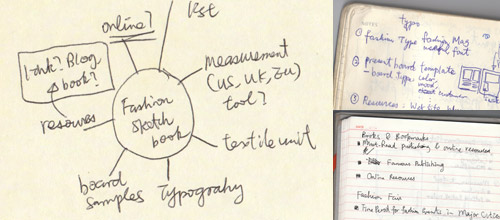 online?
list
link? Blog
book?
measurement
(US, UK, EU)
tool?
resources
Fashion
sketch
book
textile unit
board
samples
Typograhy
NOTES
typo
① fashion Type fashion Mag
useful font
② present board template
- board Type: color
mood
③ Resources: Web site
Books & Bookmarks
Must-Read publishing & online resources
Famous Publishing
Online Resources
Fashion Fair
Fine Event for Fashion Events in Major Cities